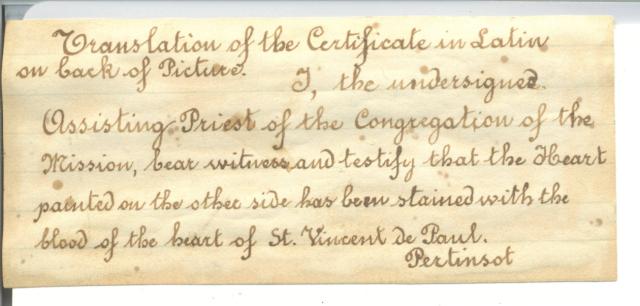 Translation of the Certificate in Latin
on back of Picture. I, the undersigned.
Assisting Priest of the Congregation of the
Mission, bear witness and testify that the Heart
painted on the other side has been stained with the
blood of the heart of St. Vincent de Paul.
Pertinsot